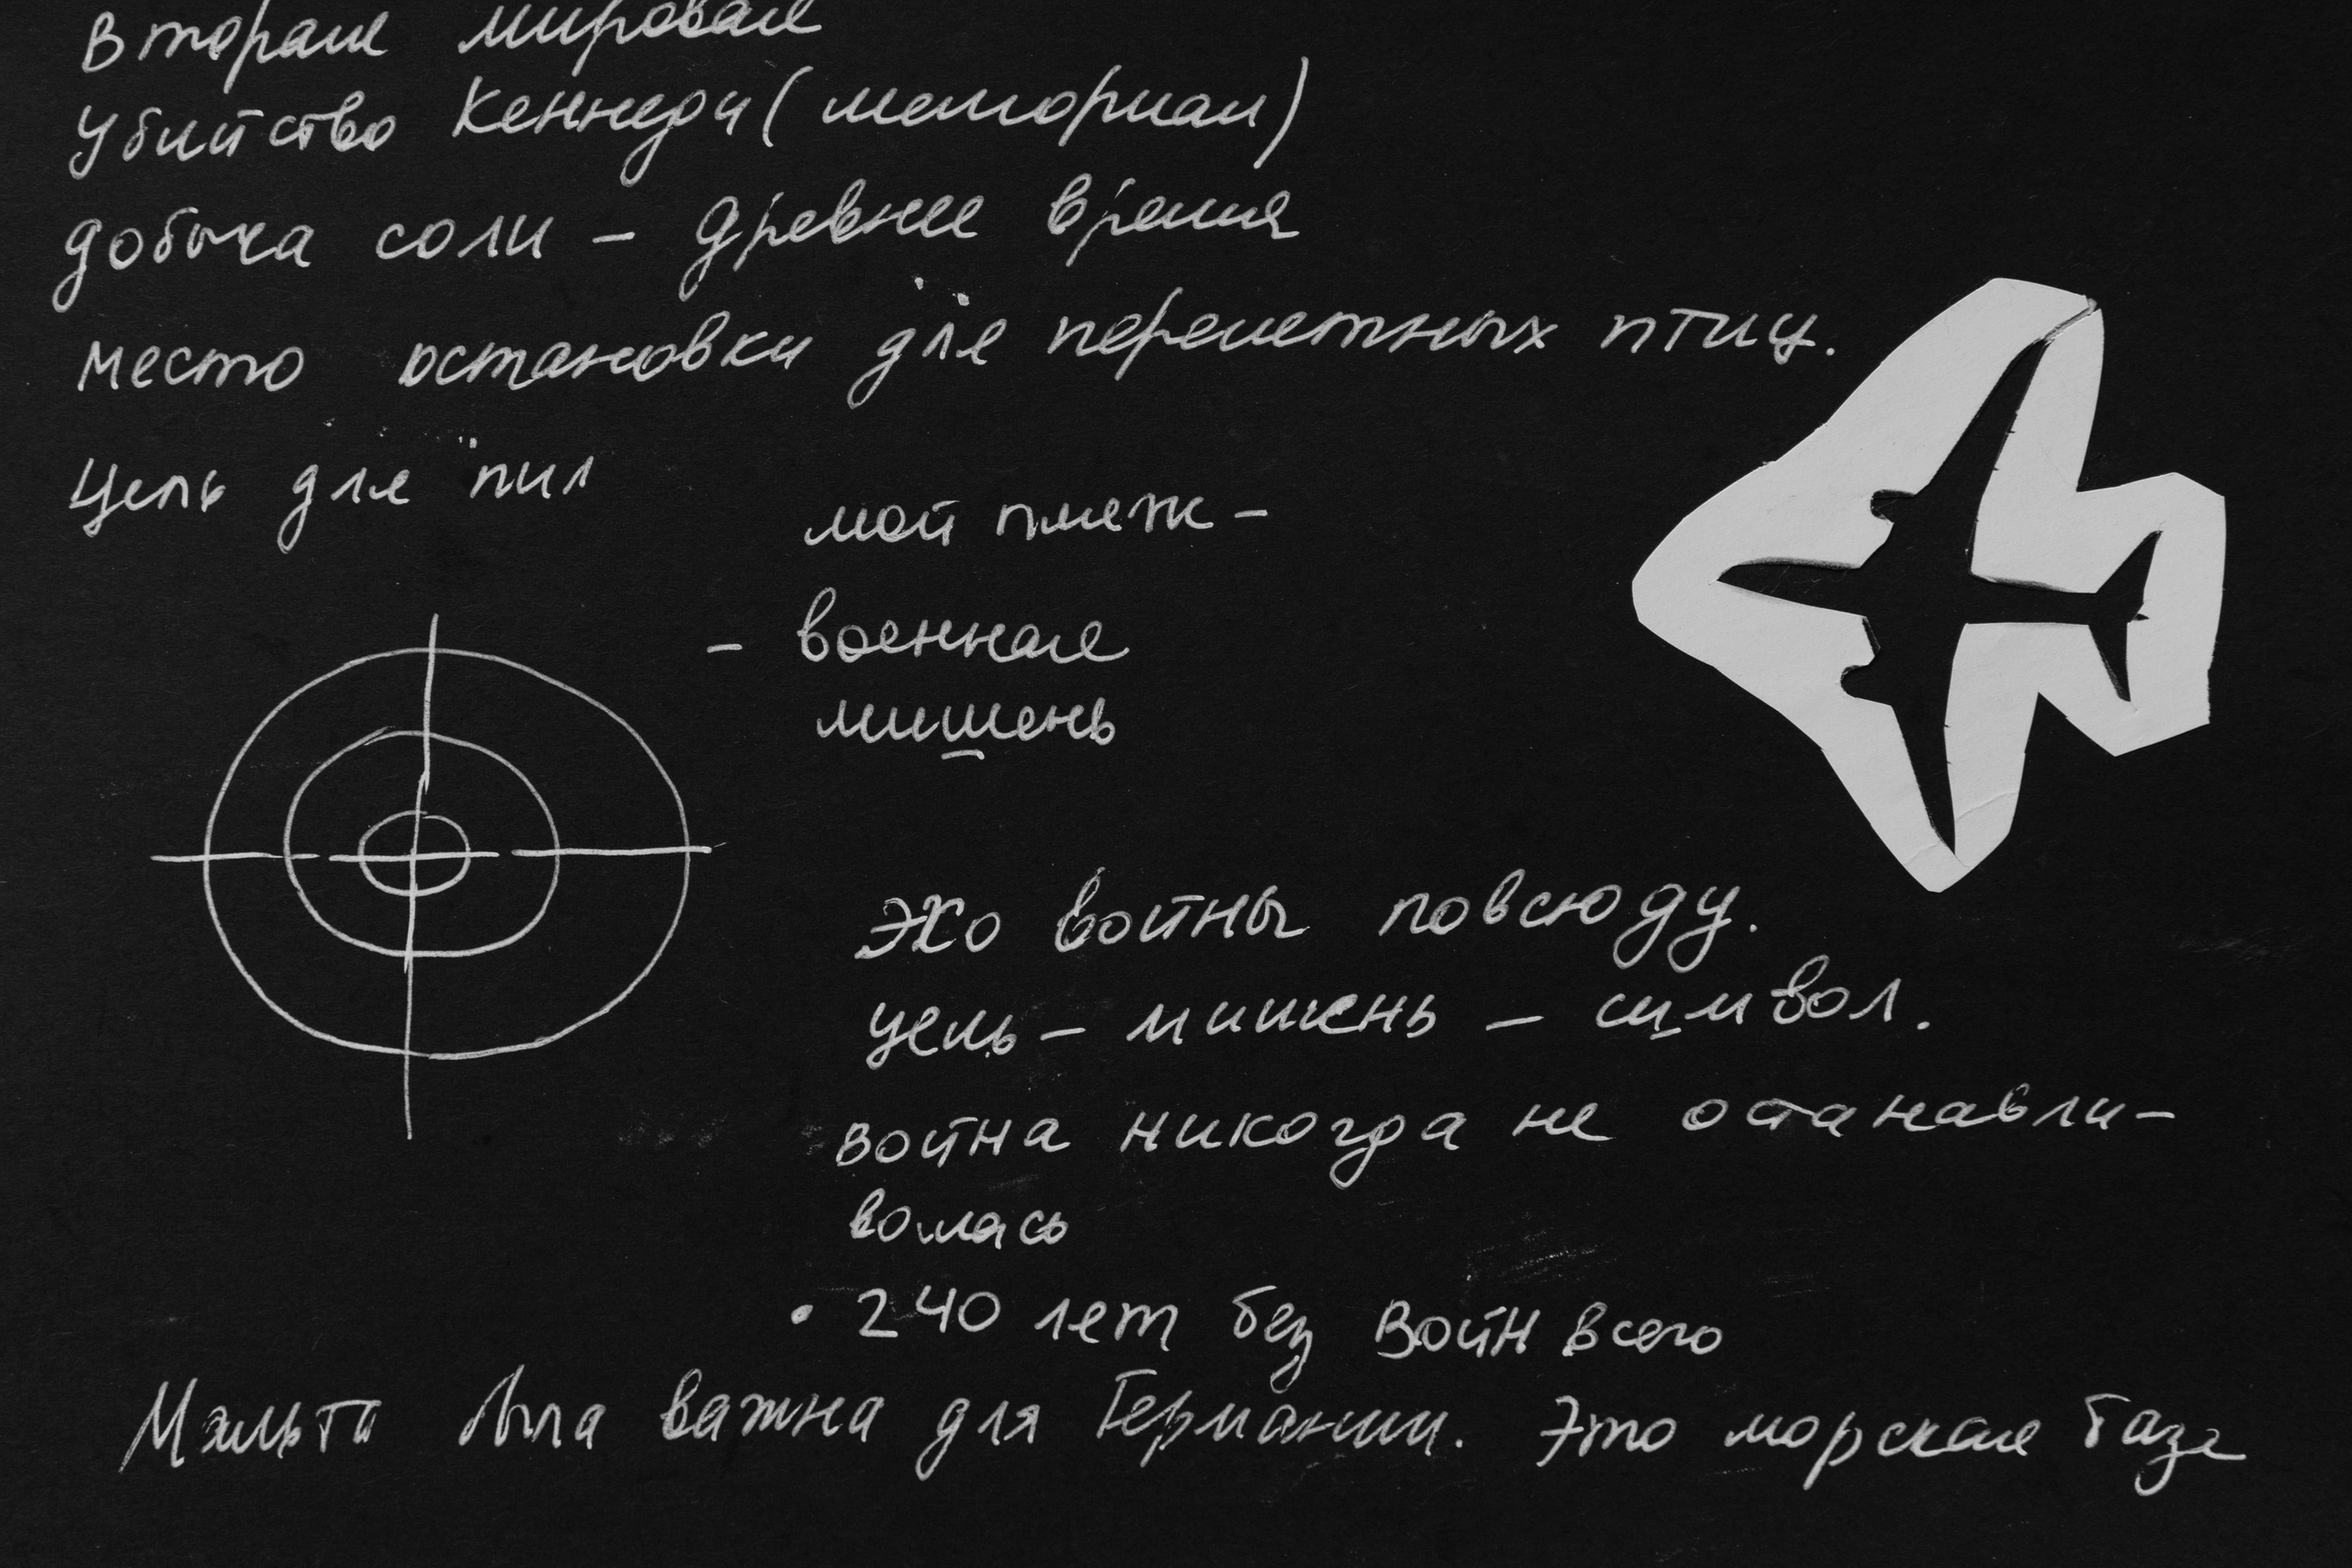 Вторая мировая
Убийство Кеннеди (мемориал)
добыча соли – древнее время
место остановки для перелетных птиц.
Цель для пил
мой пляж –
– военная
мишень
эхо войны повсюду.
цель – мишень – символ.
война никогда не останавли–
волась
• 240 лет без войн всего
Мальта была важна для Германии. Это морская база